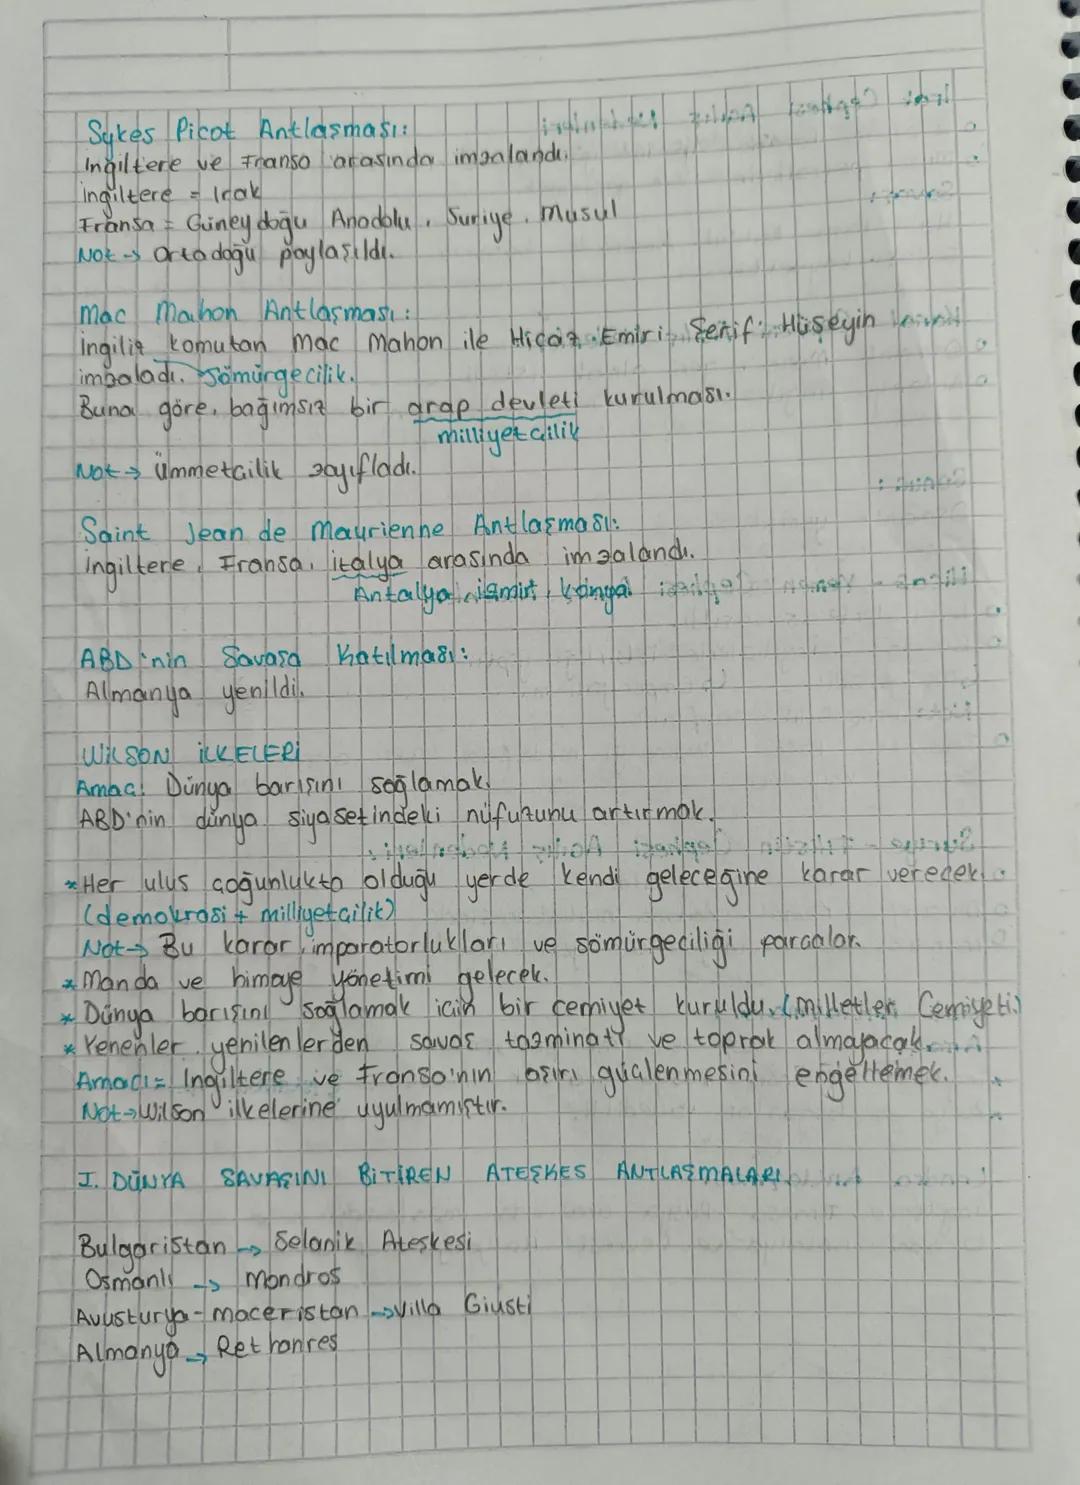 Sykes Picot Antlaşması:
İngiltere ve Fransa arasında imzalandı.
İngiltere = Irak
Fransa = Güneydoğu Anadolu, Suriye, Musul
Not → Ortadoğu paylaşıldı.
Mac Mahon Antlaşması:
İngiliz komutan Mac Mahon ile Hicaz Emiri Şerif Hüseyin
imzaladı. → Sömürgecilik.
Buna göre, bağımsız bir arap devleti kurulması.
milliyetçilik
Not → Ümmetcilik zayıfladı.
Saint Jean de Maurienne Antlaşması:
İngiltere, Fransa, İtalya arasında imzalandı.
Antalya, izmir, konya
ABD'nin Savaşa Katılması:
Almanya yenildi.
WİLSON İLKELERİ
Amaç: Dünya barışını sağlamak.
ABD'nin dünya siyasetindeki nüfuzunu artırmak.
* Her ulus çoğunlukta olduğu yerde kendi geleceğine karar verecek.
(demokrasi + milliyetçilik)
Not → Bu karar, imparatorlukları ve sömürgeciliği parçalar.
* Manda ve himaye yönetimi gelecek.
* Dünya barışını sağlamak için bir cemiyet kuruldu. (Milletler Cemiyeti.)
* Yenenler yenilenlerden savaş tazminatı ve toprak almayacak.
Amacı = İngiltere ve Fransa'nın aşırı güçlenmesini engellemek.
Not → Wilson ilkelerine uyulmamıştır.
I. DÜNYA SAVAŞINI BİTİREN ATEŞKES ANTLAŞMALARI
Bulgaristan → Selanik Ateşkesi
Osmanlı → Mondros
Avusturya - Maceristan → Villa Giusti
Almanya → Rethonres